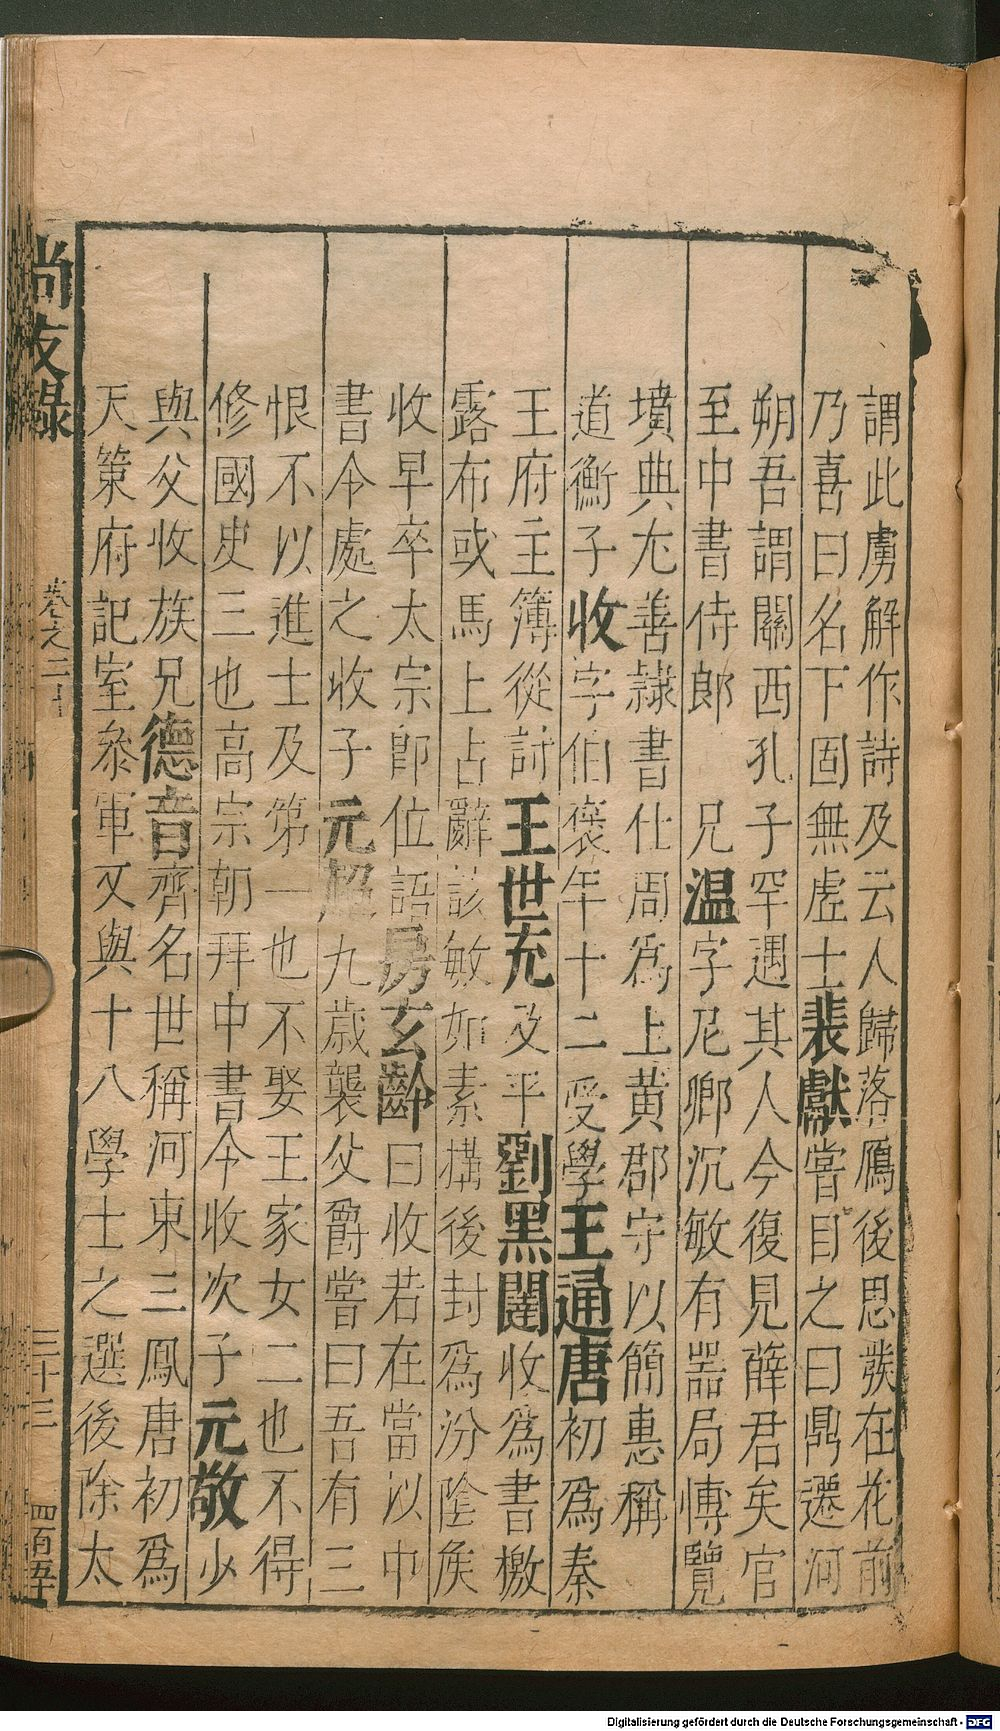 謂此虜解作詩及云人歸落鴈後思發在花前
乃喜曰名下固無虛士裴獻嘗目之曰鼎遷河
朔吾謂關西孔子罕遇其人今復見薛君矣官
至中書侍郎　兄温字尼卿沉敏有器局博覽
墳典尢善隷書仕周爲上黄郡守以簡惠稱
道衡子收字伯褒年十二受學王通唐初爲秦
王府主簿從討王世充及平劉黑闥收爲書檄
露布或馬上占辭該敏如素搆後封爲汾陰矦
收早卒太宗卽位語房玄齡曰收若在當以中
書令處之收子元超九歲襲父爵嘗曰吾有三
恨不以進士及第一也不娶王家女二也不得
修國史三也高宗朝拜中書令收次子元敬少
與父收族兄德音齊名世稱河東三鳳唐初爲
天策府記室叅軍又與十八學士之選後除太
尚友錄
卷之二十
三十三
四百五
Digitalisierung gefördert durch die Deutsche Forschungsgemeinschaft - DFG